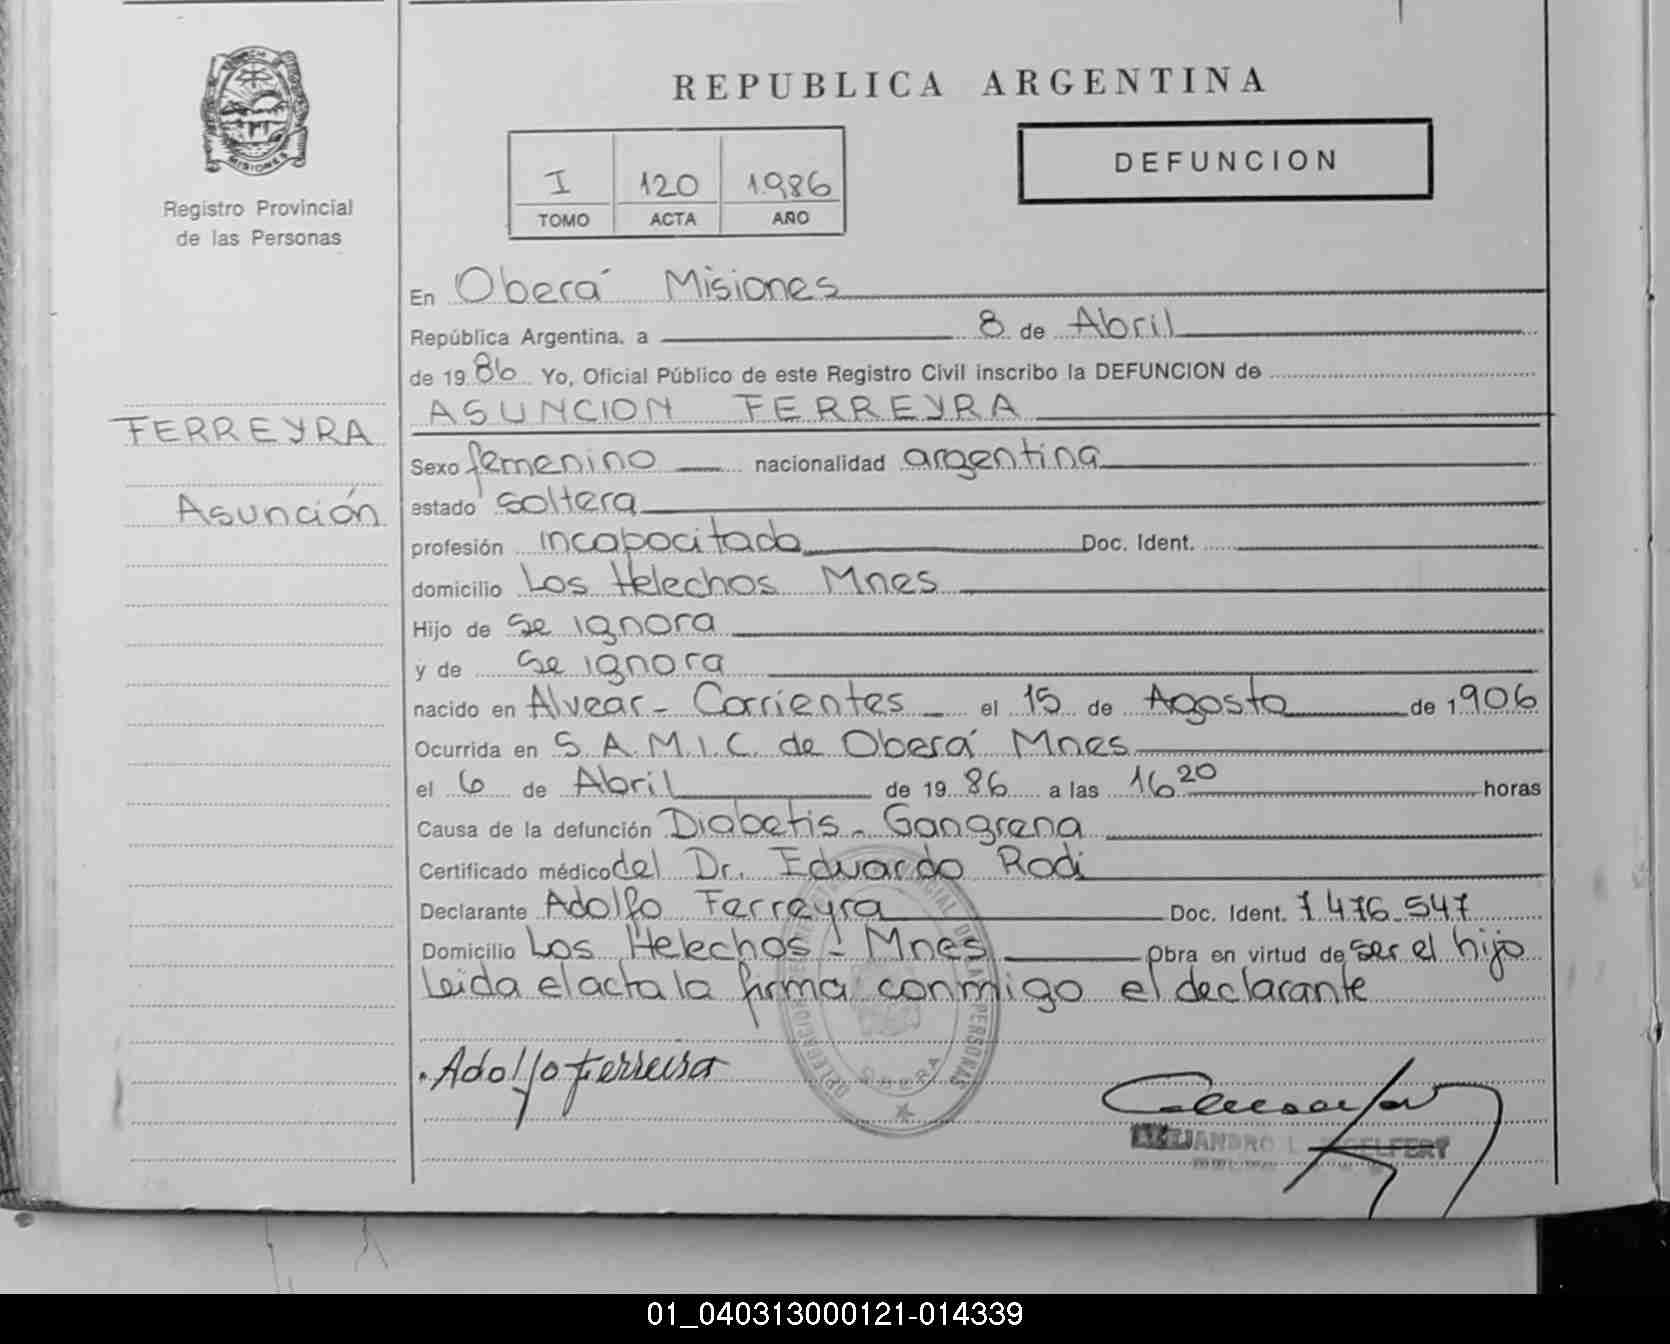 REPUBLICA ARGENTINA
PROVINCIA
MISIONES
Registro Provincial
de las Personas
I 120 1986
TOMO ACTA AÑO
DEFUNCION
En Oberá Misiones
República Argentina, a 8 de Abril
de 1986 Yo, Oficial Público de este Registro Civil inscribo la DEFUNCION de
FERREYRA
Asunción
ASUNCION FERREYRA
Sexo femenino nacionalidad argentina
estado soltera
profesión incapacitada Doc. Ident.
domicilio Los Helechos Mnes
Hijo de se ignora
y de se ignora
nacido en Alvear - Corrientes el 15 de Agosto de 1906
Ocurrida en S.A.M.I.C. de Oberá Mnes
el 6 de Abril de 1986 a las 16 20 horas
Causa de la defunción Diabetis - Gangrena
Certificado médico del Dr. Eduardo Rodi
Declarante Adolfo Ferreyra Doc. Ident. 7.476.547
Domicilio Los Helechos - Mnes Obra en virtud de ser el hijo
Leida el acta la firma conmigo el declarante
Adolfo Ferreira
PERSONAS
OBERA
ALEJANDRO L.
01_040313000121-014339